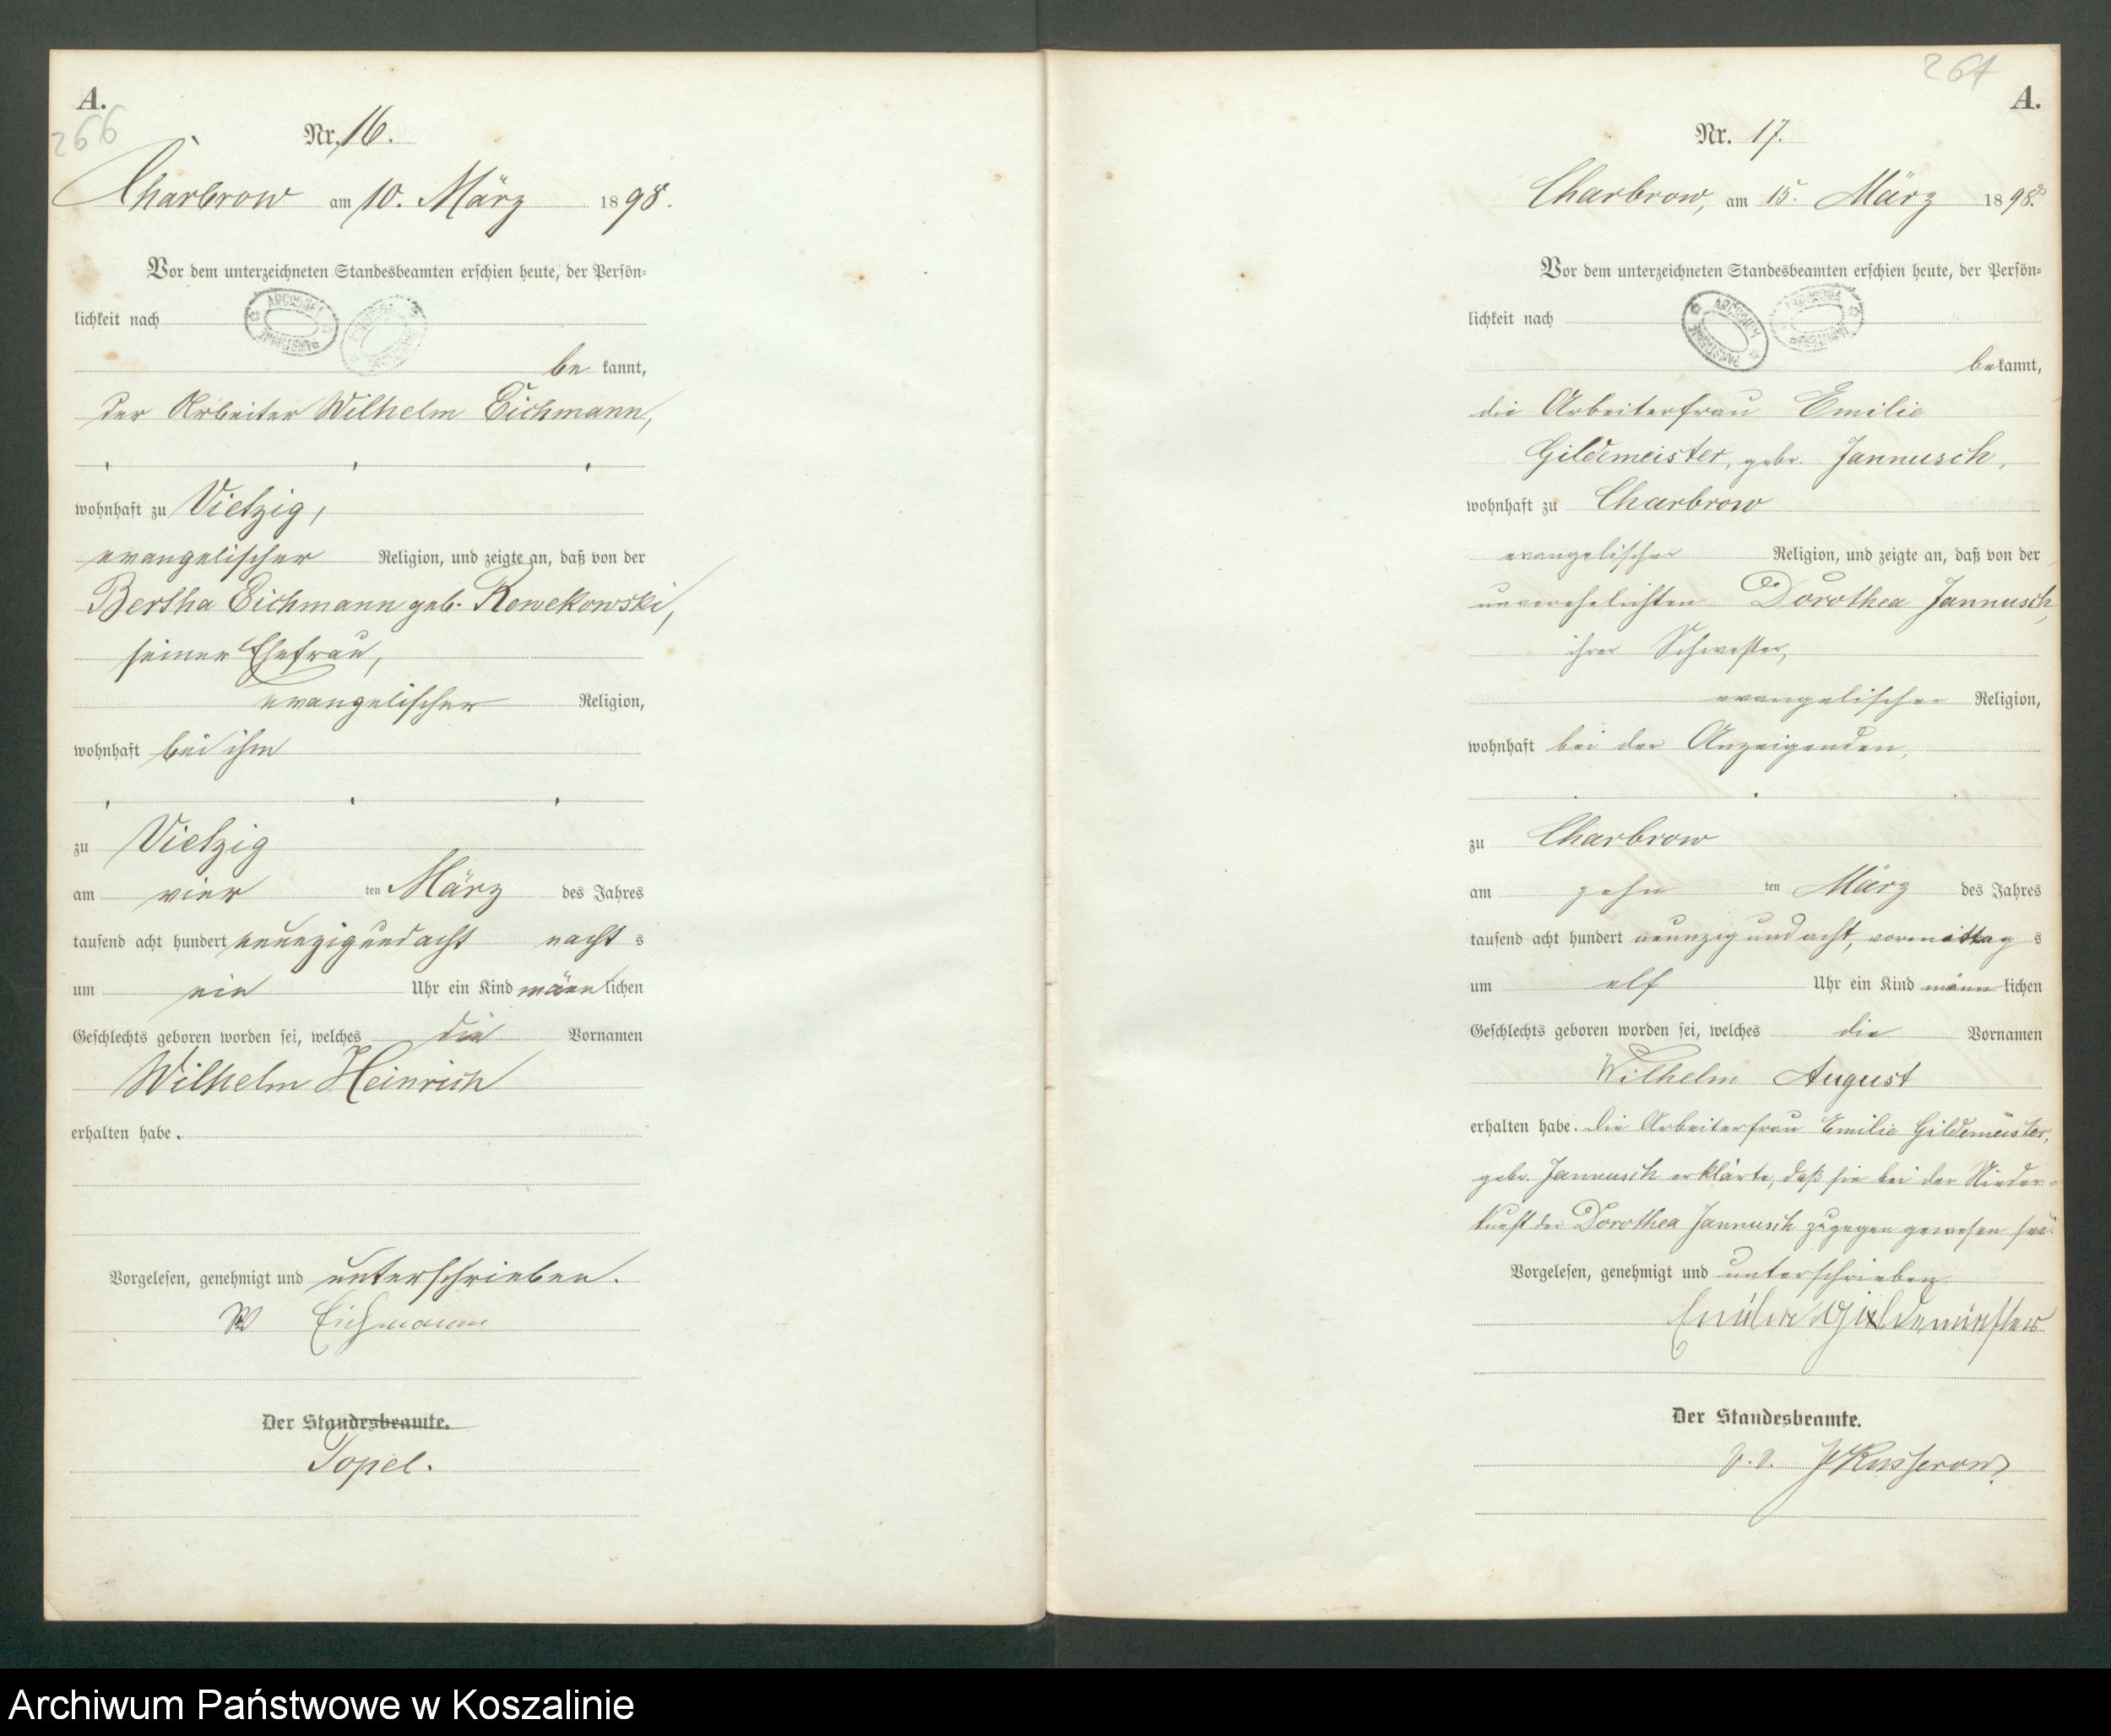 A.
266
Nr. 16.
Charbrow am 10. März 1898.
Vor dem unterzeichneten Standesbeamten erschien heute, der Persön=
lichkeit nach
be kannt,
der Arbeiter Wilhelm Eichmann,
wohnhaft zu Vietzig,
evangelischer Religion, und zeigte an, daß von der
Bertha Eichmann geb. Rewekowski,
seiner Ehefrau,
evangelischer Religion,
wohnhaft bei ihm
zu Vietzig
am vier ten März des Jahres
tausend acht hundert neunzig und acht nacht s
um ein Uhr ein Kind männ lichen
Geschlechts geboren worden sei, welches die Vornamen
Wilhelm Heinrich
erhalten habe.
Vorgelesen, genehmigt und unterschrieben.
W Eichmann
Der Standesbeamte.
Topel.
267
A.
Nr. 17.
Charbrow, am 15. März 1898.
Vor dem unterzeichneten Standesbeamten erschien heute, der Persön=
lichkeit nach
ARCHIWUM
be kannt,
die Arbeiterfrau Emilie
Gildemeister, gebr. Jannusch,
wohnhaft zu Charbrow
evangelischer Religion, und zeigte an, daß von der
unverehelichten Dorothea Jannusch,
ihrer Schwester,
evangelischer Religion,
wohnhaft bei der Anzeigenden,
zu Charbrow
am zehn ten März des Jahres
tausend acht hundert neunzig und acht, vormittag s
um elf Uhr ein Kind männ lichen
Geschlechts geboren worden sei, welches die Vornamen
Wilhelm August
erhalten habe. Die Arbeiterfrau Emilie Gildemeister,
gebr. Jannusch erklärte, daß sie bei der Nieder=
kunft der Dorothea Jannusch zugegen gewesen sei.
Vorgelesen, genehmigt und unterschrieben
Emilie Gildemeister
Der Standesbeamte.
Archiwum Państwowe w Koszalinie